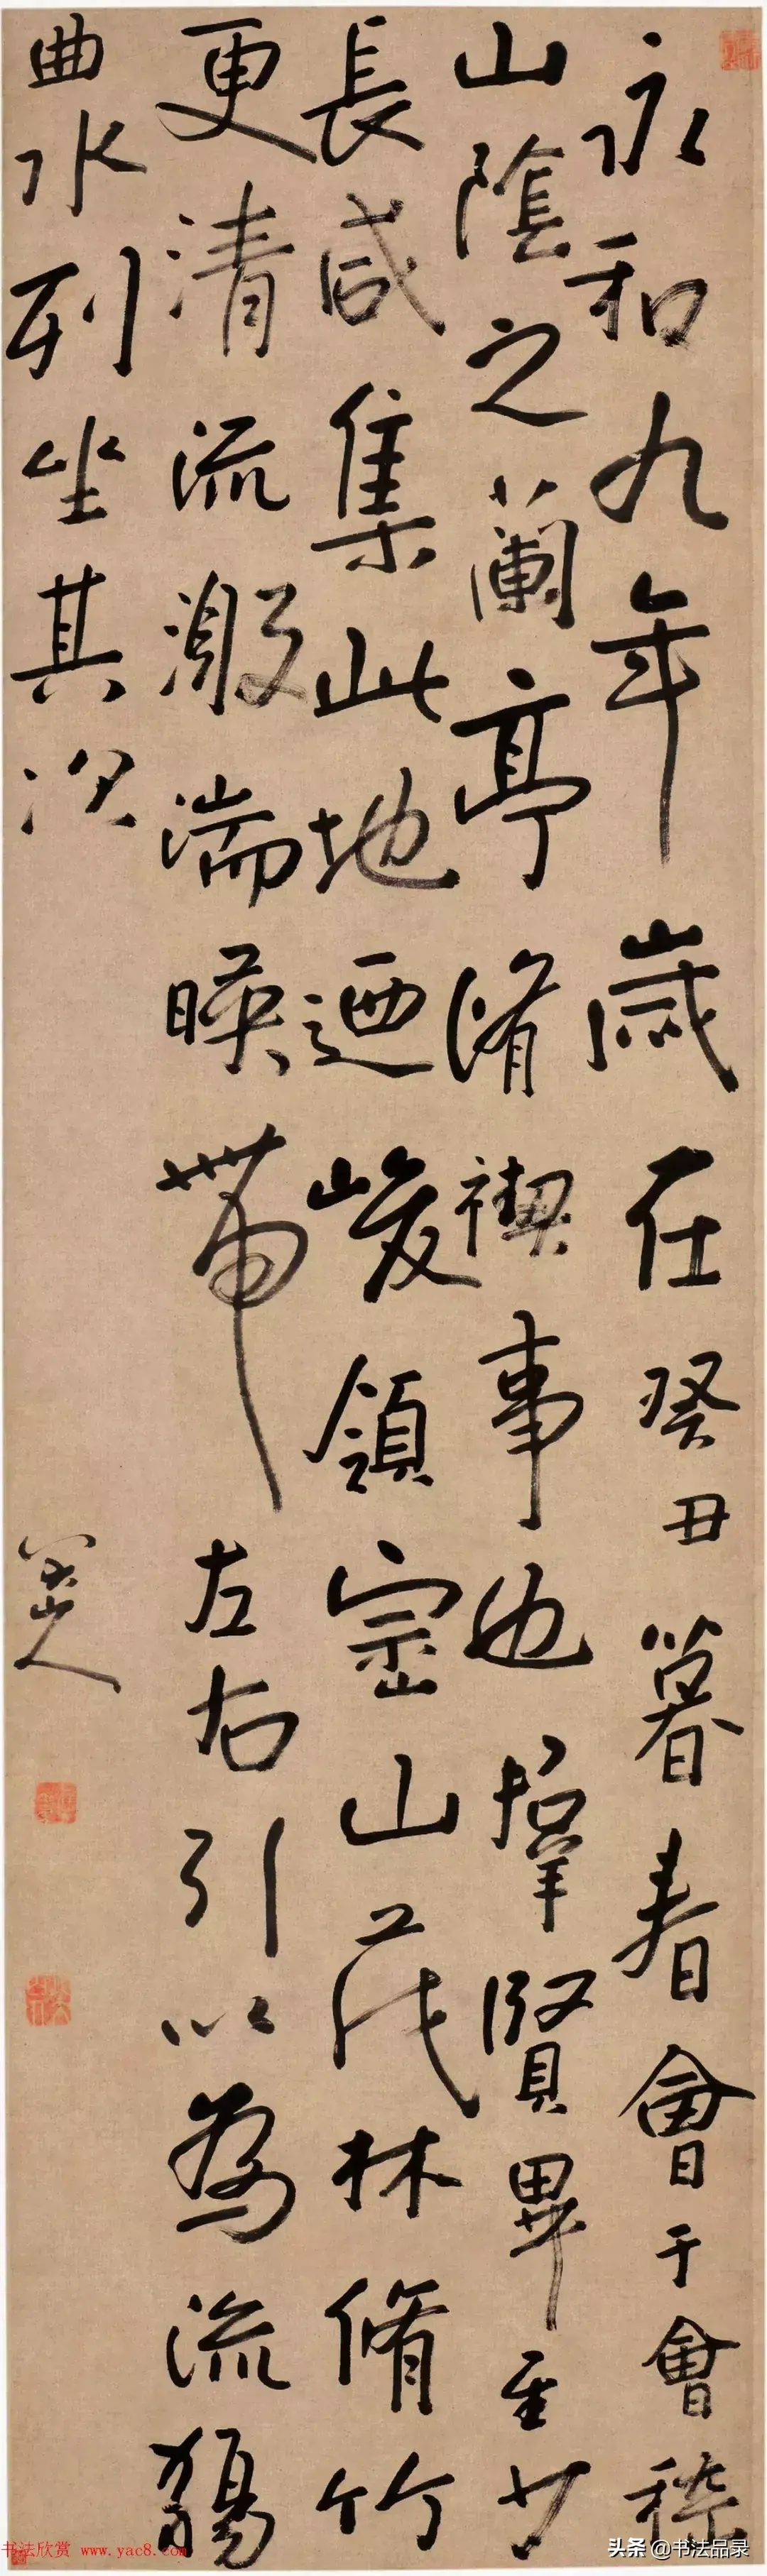 永和九年歲在癸丑暮春會于會稽
山陰之蘭亭脩禊事也羣賢畢至少
長咸集此地迺峻領崇山茂林脩竹
更清流激湍暎帶左右引以為流觴
曲水列坐其次
八大山人
书法欣赏 www.yac8.com
头条 @书法品录